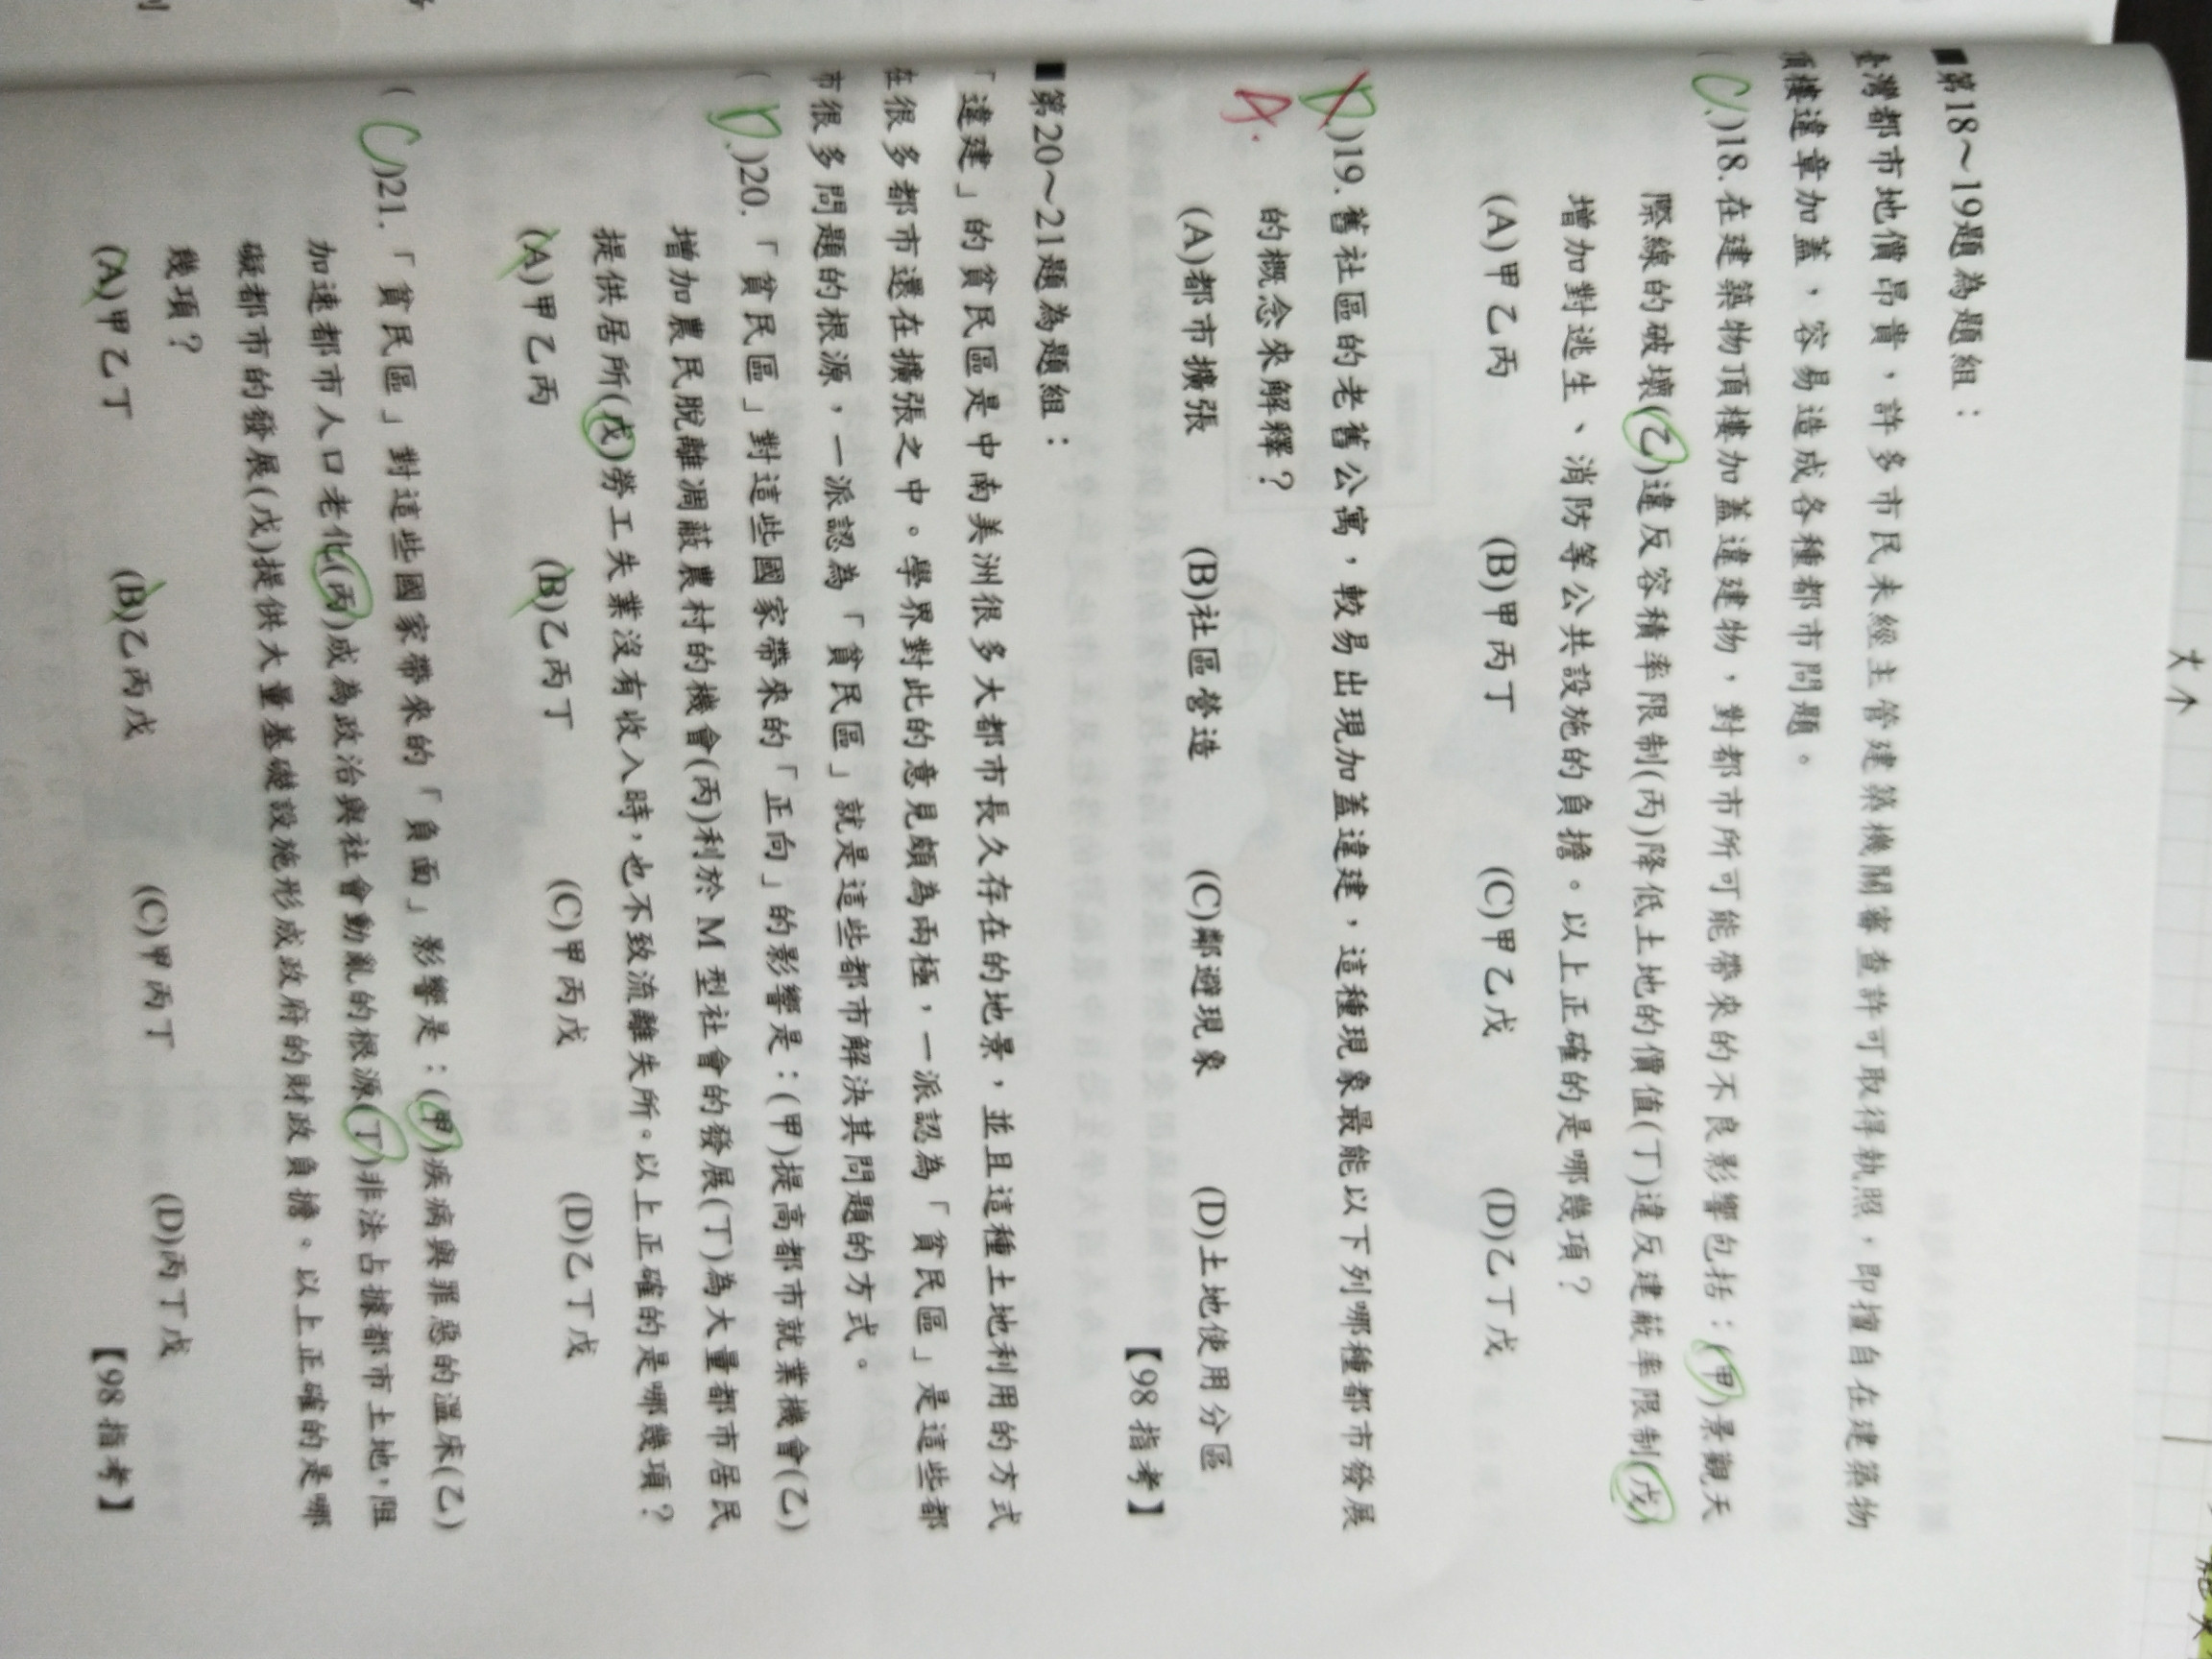 ■第18～19題為題組：
臺灣都市地價昂貴，許多市民未經主管建築機關審查許可取得執照，即擅自在建築物
頂樓違章加蓋，容易造成各種都市問題。
( C )18.在建築物頂樓加蓋違建物，對都市所可能帶來的不良影響包括：(甲)景觀天
際線的破壞(乙)違反容積率限制(丙)降低土地的價值(丁)違反建蔽率限制(戊)
增加對逃生、消防等公共設施的負擔。以上正確的是哪幾項？
(A)甲乙丙 (B)甲丙丁 (C)甲乙戊 (D)乙丁戊
( D )19.舊社區的老舊公寓，較易出現加蓋違建，這種現象最能以下列哪種都市發展
A. 的概念來解釋？
(A)都市擴張 (B)社區營造 (C)鄰避現象 (D)土地使用分區
【98指考】
■第20～21題為題組：
「違建」的貧民區是中南美洲很多大都市長久存在的地景，並且這種土地利用的方式
在很多都市還在擴張之中。學界對此的意見頗為兩極，一派認為「貧民區」是這些都
市很多問題的根源，一派認為「貧民區」就是這些都市解決其問題的方式。
( D. )20.「貧民區」對這些國家帶來的「正向」的影響是：(甲)提高都市就業機會(乙)
增加農民脫離凋蔽農村的機會(丙)利於M型社會的發展(丁)為大量都市居民
提供居所(戊)勞工失業沒有收入時，也不致流離失所。以上正確的是哪幾項？
(A)甲乙丙 (B)乙丙丁 (C)甲丙戊 (D)乙丁戊
( C )21.「貧民區」對這些國家帶來的「負面」影響是：(甲)疾病與罪惡的溫床(乙)
加速都市人口老化(丙)成為政治與社會動亂的根源(丁)非法占據都市土地，阻
礙都市的發展(戊)提供大量基礎設施形成政府的財政負擔。以上正確的是哪
幾項？
(A)甲乙丁 (B)乙丙戊 (C)甲丙丁 (D)丙丁戊
【98指考】